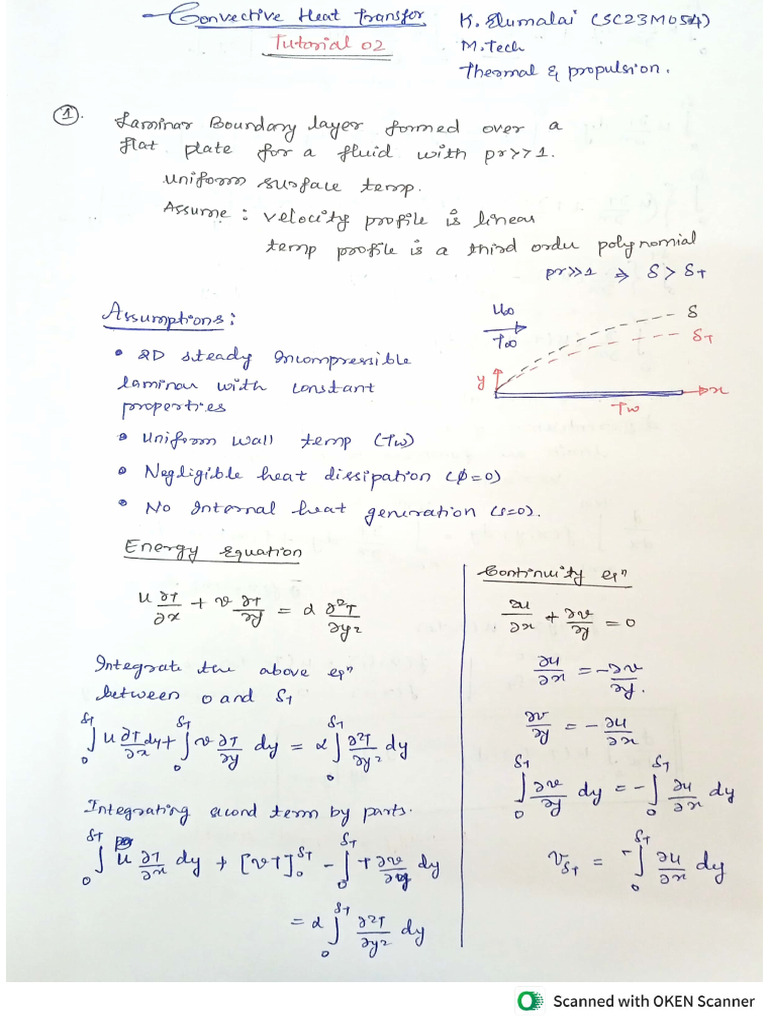 Convective Heat Transfer
Tutorial 02
K. Elumalai (SC23M054)
M.Tech
Thermal & propulsion.
①. Laminar Boundary layer formed over a
flat plate for a fluid with pr>>1.
uniform surface temp.
Assume: velocity profile is linear
temp profile is a third order polynomial
pr>>1 ⇒ δ > δT
Assumptions:
• 2D steady Incompressible
laminar with constant
properties
• uniform wall temp (Tw)
• Negligible heat dissipation (ϕ=0)
• No Internal heat generation (s=0).
U∞
T∞
δ
δT
y
x
Tw
Energy Equation
u ∂T/∂x + v ∂T/∂y = α ∂²T/∂y²
Integrate the above eqⁿ
between 0 and δT
∫₀^δT u ∂T/∂x dy + ∫₀^δT v ∂T/∂y dy = α ∫₀^δT ∂²T/∂y² dy
Integrating second term by parts.
∫₀^δT u ∂T/∂x dy + [vT]₀^δT - ∫₀^δT T ∂v/∂y dy
= α ∫₀^δT ∂²T/∂y² dy
Continuity eqⁿ
∂u/∂x + ∂v/∂y = 0
∂u/∂x = -∂v/∂y.
∂v/∂y = -∂u/∂x
∫₀^δT ∂v/∂y dy = -∫₀^δT ∂u/∂x dy
vδT = -∫₀^δT ∂u/∂x dy
Scanned with OKEN Scanner